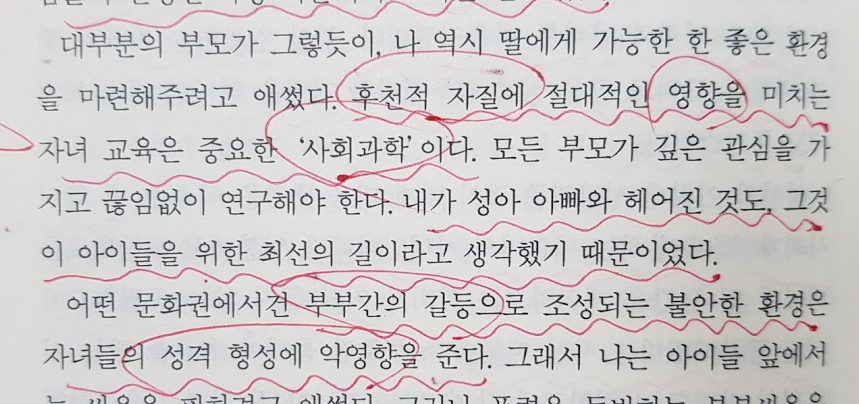 대부분의 부모가 그렇듯이, 나 역시 딸에게 가능한 한 좋은 환경
을 마련해주려고 애썼다. 후천적 자질에 절대적인 영향을 미치는
자녀 교육은 중요한 ‘사회과학’이다. 모든 부모가 깊은 관심을 가
지고 끊임없이 연구해야 한다. 내가 성아 아빠와 헤어진 것도, 그것
이 아이들을 위한 최선의 길이라고 생각했기 때문이었다.
어떤 문화권에서건 부부간의 갈등으로 조성되는 불안한 환경은
자녀들의 성격 형성에 악영향을 준다. 그래서 나는 아이들 앞에서